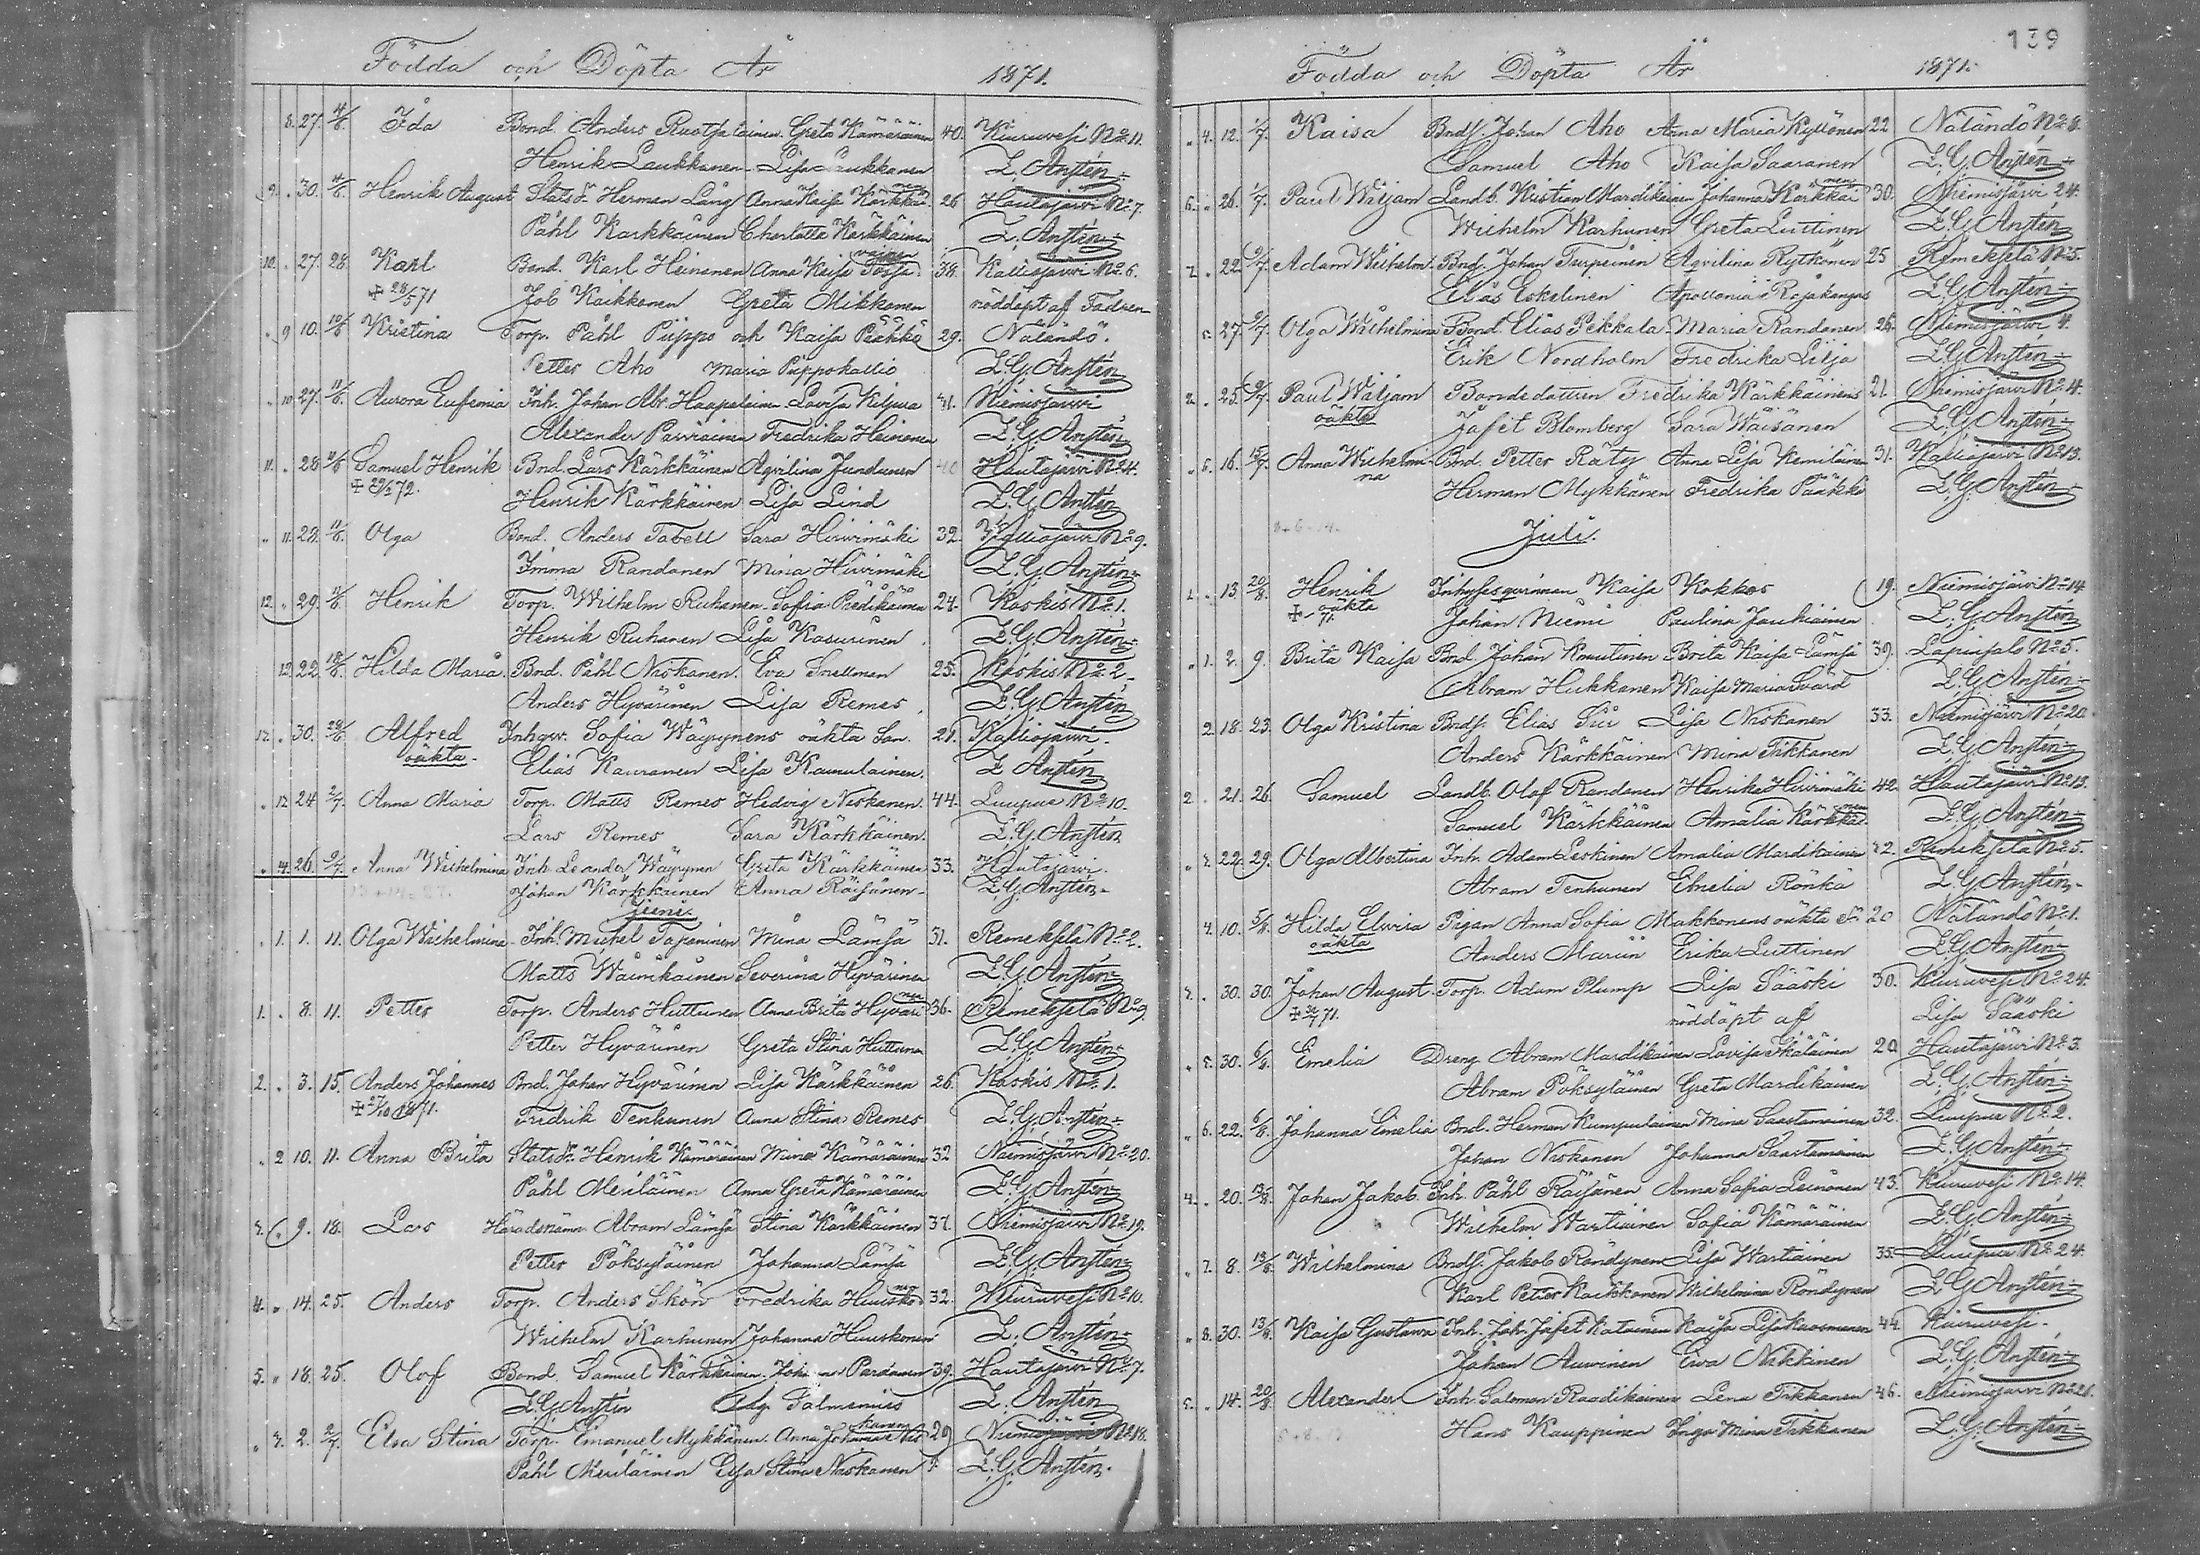 Födda och Döpta År 1871.
8. 27. 4/6 Ida Bond. Anders Ruotsalainen Greta Kämäräinen 40. Kiuruvesi No 11.
Henrik Laukkanen Lisa Laukkanen L. Anstén
9. 30. 4/6 Henrik August Herman Lång Anna Kaisa Kärkkäi 26 Hautajärvi No 7.
Påhl Karkkäinen Charlotta Kärkkäinen L. Anstén
10. 27. 28 Karl Bond. Karl Heinonen Anna Kaisa 38. Kalliojärvi No 6.
+ 28/5 71 Job Kaikkonen Greta Mikkonen nöddöpt af Fadren
9 10. Kristina Torp. Påhl Piippo och Kaisa Pääkkö 29. Näländö.
Petter Aho Maria Piippokallio L. G. Anstén
10 27. 11/6 Aurora Eufemia Inh. Johan Abr. Haapalainen Lovisa Kiljua 41. Niemisjärvi
Alexander Parviainen Fredrika Heinonen L. G. Anstén
11. 28 11/6 Samuel Henrik Bnd. Lars Kärkkäinen Aqvilina Jundunen 40 Hautajärvi No 4.
72. Henrik Kärkkäinen Lisa Lind L. G. Anstén
11. 28. 11/6 Olga Bond. Anders Tabell Sara Hirvimäki 32. Kalliojärvi No 9.
Imma Randanen Mina Hirvimäki L. G. Anstén
12. 29. 11/6 Henrik Torp. Wilhelm Ruhanen Sofia Predikainen 24. Koskis No 1.
Henrik Ruhanen Lisa Kasurinen L. G. Anstén
13. 22. 18/6 Hilda Maria. Bnd. Påhl Niskanen. Eva Snellman 25. Koskis No 2.
Anders Hyvärinen Lisa Remes L. G. Anstén
12. 30. Alfred Inhqv. Sofia Wäyrynens oäkta Son. 21. Kalliojärvi.
oäkta. Elias Kauranen Lisa Kamulainen. L Anstén
12 24 2/7. Anna Maria Torp. Matts Remes Hedvig Niskanen. 44. Luupue No 10.
Lars Remes Sara Kärkkäinen. L. G. Anstén
4. 26. 2/7. Anna Wilhelmina Inh. Leander Wäyrynen Greta Kärkkäinen 33. Hautajärvi.
Johan Kärkkäinen Anna Räisänen L. G. Anstén
Juni.
1. 1. 11. Olga Wilhelmina Inh. Mickel Tapaninen Mina Lämsä 31. Remekselä No 2.
Matts Wainikainen Severina Hyvärinen L. G. Anstén
1. 8. 11. Petter Torp. Anders Huttunen Anna Brita Hyväri nen 36. Remekselä No 9.
Petter Hyvärinen Greta Stina Huttunen L. G. Anstén
2. 3. 15. Anders Johannes Bnd. Johan Hyvärinen Lisa Kärkkäinen 26. Koskis No 1.
+ 1871. Fredrik Tenhunen Anna Stina Remes L. G. Anstén
2 10. 11. Anna Brita Henrik Kämäräinen Mina Kämäräinen 32 Niemisjärvi No 20.
Påhl Meriläinen Anna Greta Kämäräinen L. G. Anstén
9. 18. Lars Häradsnämn Abram Lämsä Stina Kärkkäinen 37. Niemisjärvi No 19.
Petter Pöksyläinen Johanna Lämsä L. G. Anstén
4. 14. 25. Anders Torp. Anders Skön Fredrika Huusko nen 32. Kiuruvesi No 10.
Wilhelm Karhunen Johanna Huuskonen L. Anstén
5. 18. 25. Olof Bond. Samuel Kärkkäinen Pardanen 39. Hautajärvi No 7.
L. G. Anstén L. Anstén
3. 2. 2/7. Elsa Stina Torp. Emanuel Mykkänen. Anna Johanna Nis kanen 29 Niemisjärvi No 18.
Påhl Meriläinen Lisa Stina Niskanen L. G. Anstén.
139
Födda och Döpta År 1871.
4. 12. 1/7. Kaisa Bnds. Johan Aho Anna Maria Kyllönen 22 Näländö No 8.
Samuel Aho Kaisa Saaranen L. G. Anstén
6. 26. 1/7. Paul Wiljam Landb. Kristian Mardikainen Johanna Kärkkäi nen 30. Niemisjärvi 24.
Wilhelm Karhunen Greta Luttinen L. G. Anstén
7. 22. 2/7. Adam Wilhelm. Bnds. Johan Turpeinen Aqvilina Rytkönen 25 Remekselä No 5.
Elias Eskelinen Apollonia Rajakangas L. G. Anstén
5. 27. 2/7. Olga Wilhelmina Bond. Elias Pekkala. Maria Randanen 26. Niemisjärvi 4.
Erik Nordholm Fredrika Lilja L. G. Anstén
8. 25. 2/7. Paul Wiljam Bondedottren Fredrika Kärkkäinens 21. Niemisjärvi No 4.
oäkta Jafet Blomberg Sara Wäisänen L. G. Anstén
5. 16. 15/7. Anna Wilhelmi- na Bnd. Petter Räty Anna Lisa Kemiläinen 31. Kalliojärvi No 13.
Herman Mykkänen Fredrika Pääkkö L. G. Anstén
Juli.
1. 13. 20/8. Henrik Inhysesqvinnan Kaisa Kokkos 19. Niemisjärvi No 14
oäkta Johan Niemi Paulina Jauhiainen L. G. Anstén
1. 2. 9. Brita Kaisa Bnd. Johan Knuutinen Brita Kaisa Lämsä 39. Lapinsalo No 5.
Abram Hukkanen Kaisa Maria Svärd L. G. Anstén
2. 18. 23. Olga Kristina Bnds. Elias Siir Lisa Niskanen 33. Niemisjärvi No 20.
Anders Kärkkäinen Mina Tikkanen L. G. Anstén
2. 21. 26. Samuel Landb. Olof Randanen Henrika Hirvimäki 42. Hautajärvi No 13.
Samuel Kärkkäinen Amalia Kärkkäi nen L. G. Anstén
22. 29. Olga Albertina Inh. Adam Leskinen Amalia Mardikainen 42. Remekselä No 5.
Abram Tenhunen Emelia Rönkä L. G. Anstén
4. 10. 5/8. Hilda Elvira Pigan Anna Sofia Makkonens oäkta 20 Näländö No 1.
oäkta Anders Mariin Erika Luttinen L. G. Anstén
3. 30. 30. Johan August. Torp. Adam Plump Lisa Sääski 30. Kiuruvesi No 24.
71. nöddöpt af Lisa Sääski
5. 30. 6/8. Emelia Dreng Abram Mardikainen Lovisa Ikäläinen 20 Hautajärvi No 3.
Abram Pöksyläinen Greta Mardikainen L. G. Anstén
6. 22. 6/8. Johanna Emelia Bnd. Herman Kumpulainen Mina Saastamoinen 32. Luupue No 2.
Johan Niskanen Johanna Saastamoinen L. G. Anstén
4. 20. Johan Jakob Inh. Påhl Räisänen Anna Sofia Leinonen 43. Kiuruvesi No 14.
Wilhelm Wartiainen Sofia Kämäräinen L. G. Anstén
7. 8. 13/8. Wilhelmina Bnds. Jakob Röndynen Lisa Wartiainen 35. Luupue No 24.
Karl Petter Kaikkonen Wilhelmina Röndynen L. G. Anstén
8. 30. 13/8. Kaisa Gustava Inh. Joh. Jafet Katainen Kaisa Lisa Kuosmanen 44. Kiuruvesi.
Johan Auvinen Eva Nikkinen L. G. Anstén
5. 14. 20/8. Alexander Inh. Salomon Raadikainen Lena Tikkanen 46. Niemisjärvi No 21.
Hans Kauppinen Inga Mina Tikkanen L. G. Anstén